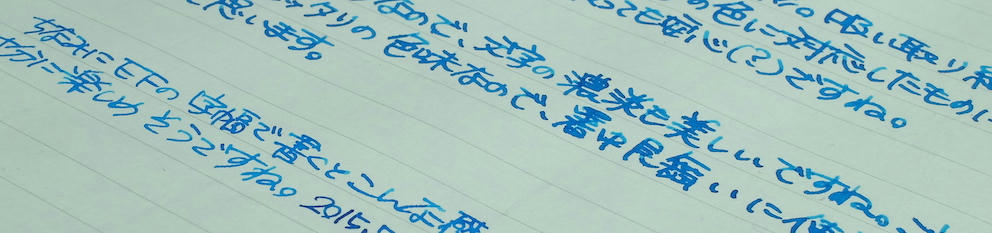 。吸い取り紙
の色に対応したものに
っても安心(?)ですね。
なので、文字の濃淡も美しいですね。
ッタリの色味なので、暑中見舞いに使
と思います。
ちなみにEFの字幅で書くとこんな
十分に楽しめそうですね。2015.